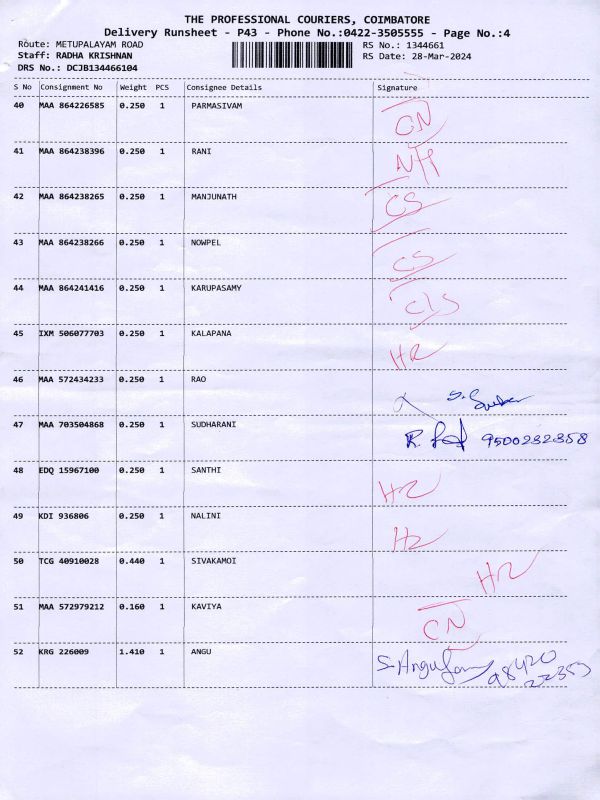 THE PROFESSIONAL COURIERS, COIMBATORE
Delivery Runsheet - P43 - Phone No.:0422-3505555 - Page No.:4
Route: METUPALAYAM ROAD RS No.: 1344661
Staff: RADHA KRISHNAN RS Date: 28-Mar-2024
DRS No.: DCJB134466104
S No Consignment No Weight PCS Consignee Details Signature
40 MAA 864226585 0.250 1 PARMASIVAM CN
41 MAA 864238396 0.250 1 RANI
42 MAA 864238265 0.250 1 MANJUNATH CS
43 MAA 864238266 0.250 1 NOWPEL CS
44 MAA 864241416 0.250 1 KARUPASAMY CLS
45 IXM 506077703 0.250 1 KALAPANA HR
46 MAA 572434233 0.250 1 RAO
47 MAA 703504868 0.250 1 SUDHARANI R. 9500232358
48 EDQ 15967100 0.250 1 SANTHI HR
49 KDI 936806 0.250 1 NALINI HR
50 TCG 40910028 0.440 1 SIVAKAMOI HR
51 MAA 572979212 0.160 1 KAVIYA CN
52 KRG 226009 1.410 1 ANGU 98420
22353